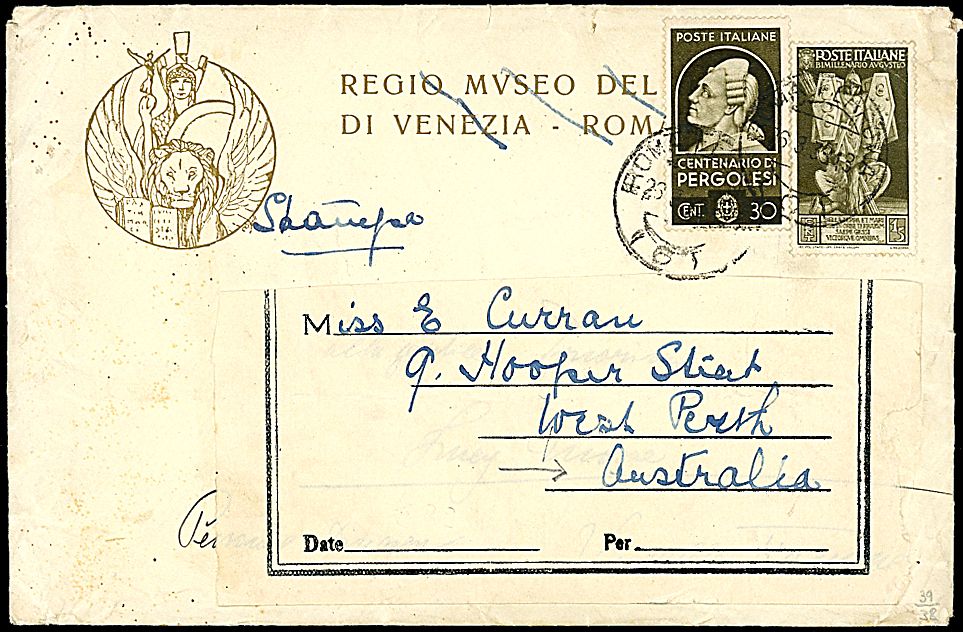 REGIO MVSEO DEL
DI VENEZIA - ROM
POSTE ITALIANE
CENTENARIO DI
PERGOLESI
CENT. 30
POSTE ITALIANE
BIMILLENARIO AVGVSTEO
15
ROMA
Stampe
Miss E Curran
9. Hooper Street
West Perth
Australia
Date
Per
39
38